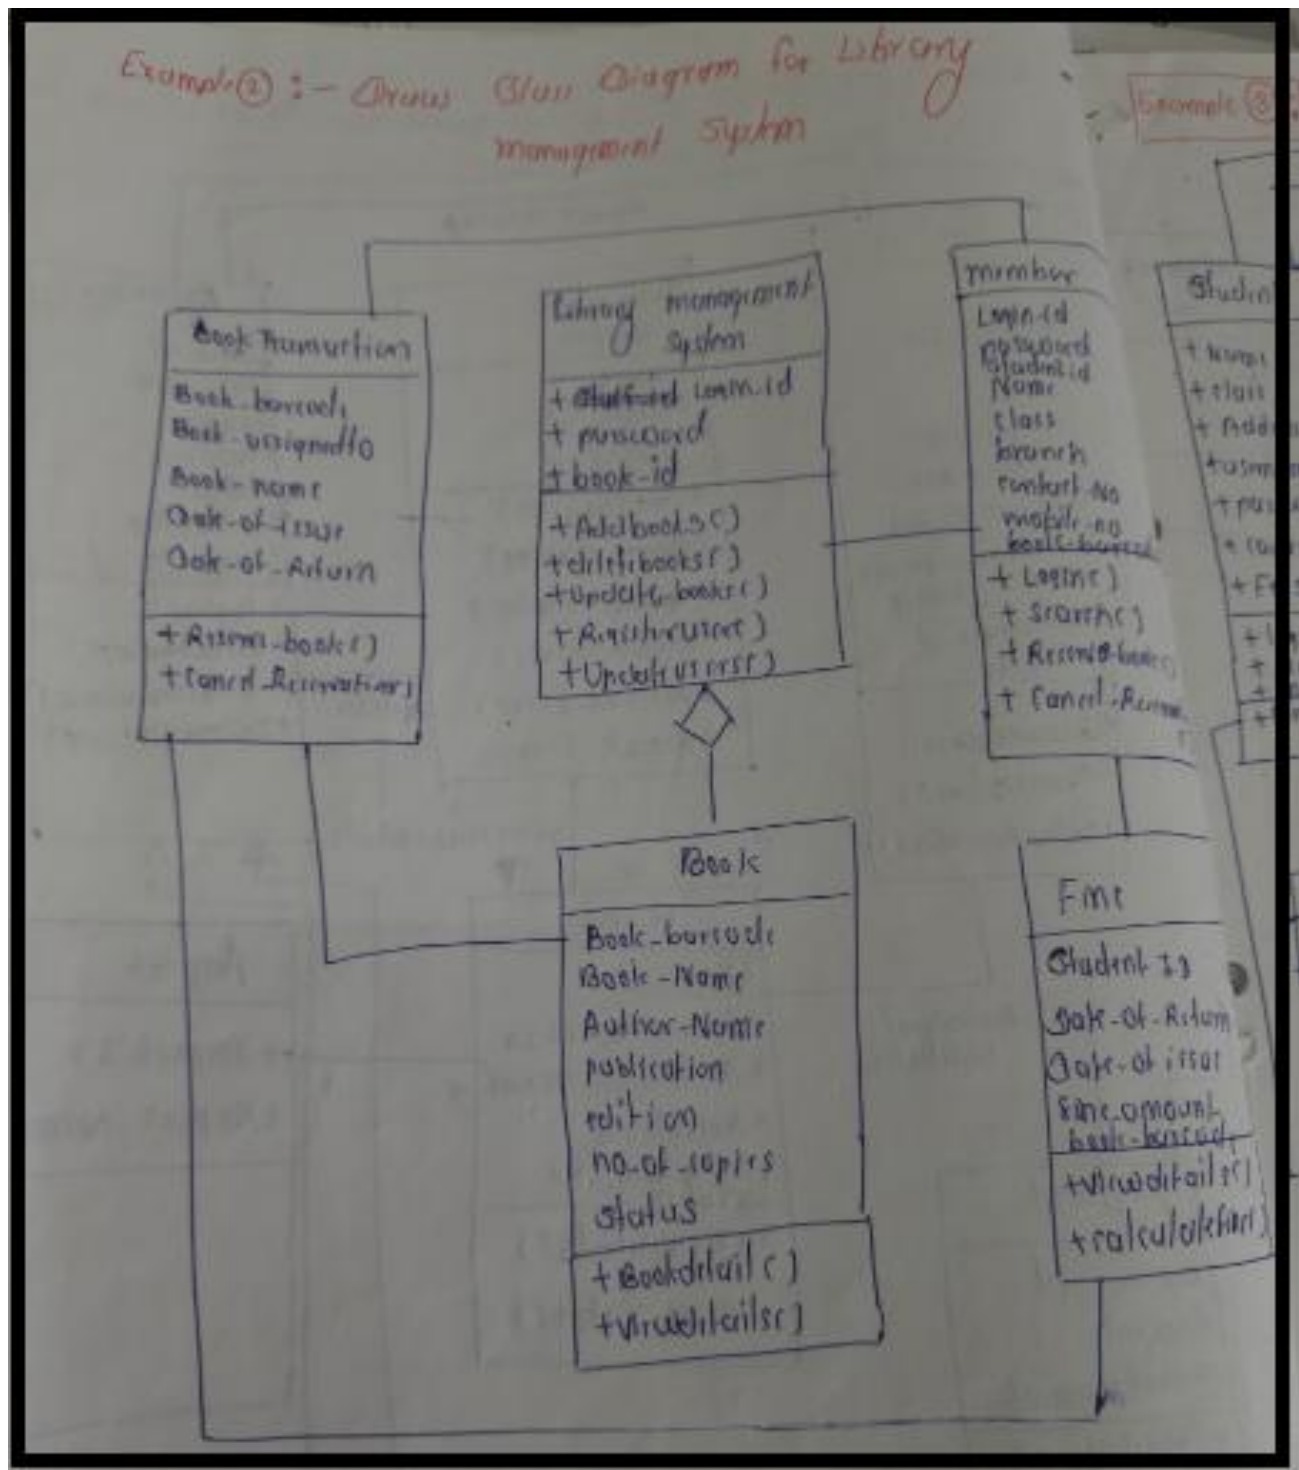 Example ② :- Draw Class Diagram for Library
management System
Example ③ :
Book Transaction
Book-barcode
Book-assignedto
Book-name
Date-of-issue
Date-of-Return
+ Reserve-book()
+ Cancel-Reservation()
Library management
System
+ Login-id
+ password
+ book-id
+ Addbooks()
+ deletebooks()
+ Update-books()
+ Registeruser()
+ Updateusers()
member
Login-id
password
Student-id
Name
class
branch
contact-No
mobile-no
book-barcode
+ Login()
+ Search()
+ Reserve-book()
+ Cancel-Reserva
Book
Book-barcode
Book-Name
Author-Name
publication
edition
no-of-copies
status
+ Bookdetail()
+ Viewdetails()
Fine
Student Id
Date-of-Return
Date-of issue
Fine-amount
book-barcode
+ Viewdetails()
+ calculatefine()
Studen
+ Name
+ class
+ Add